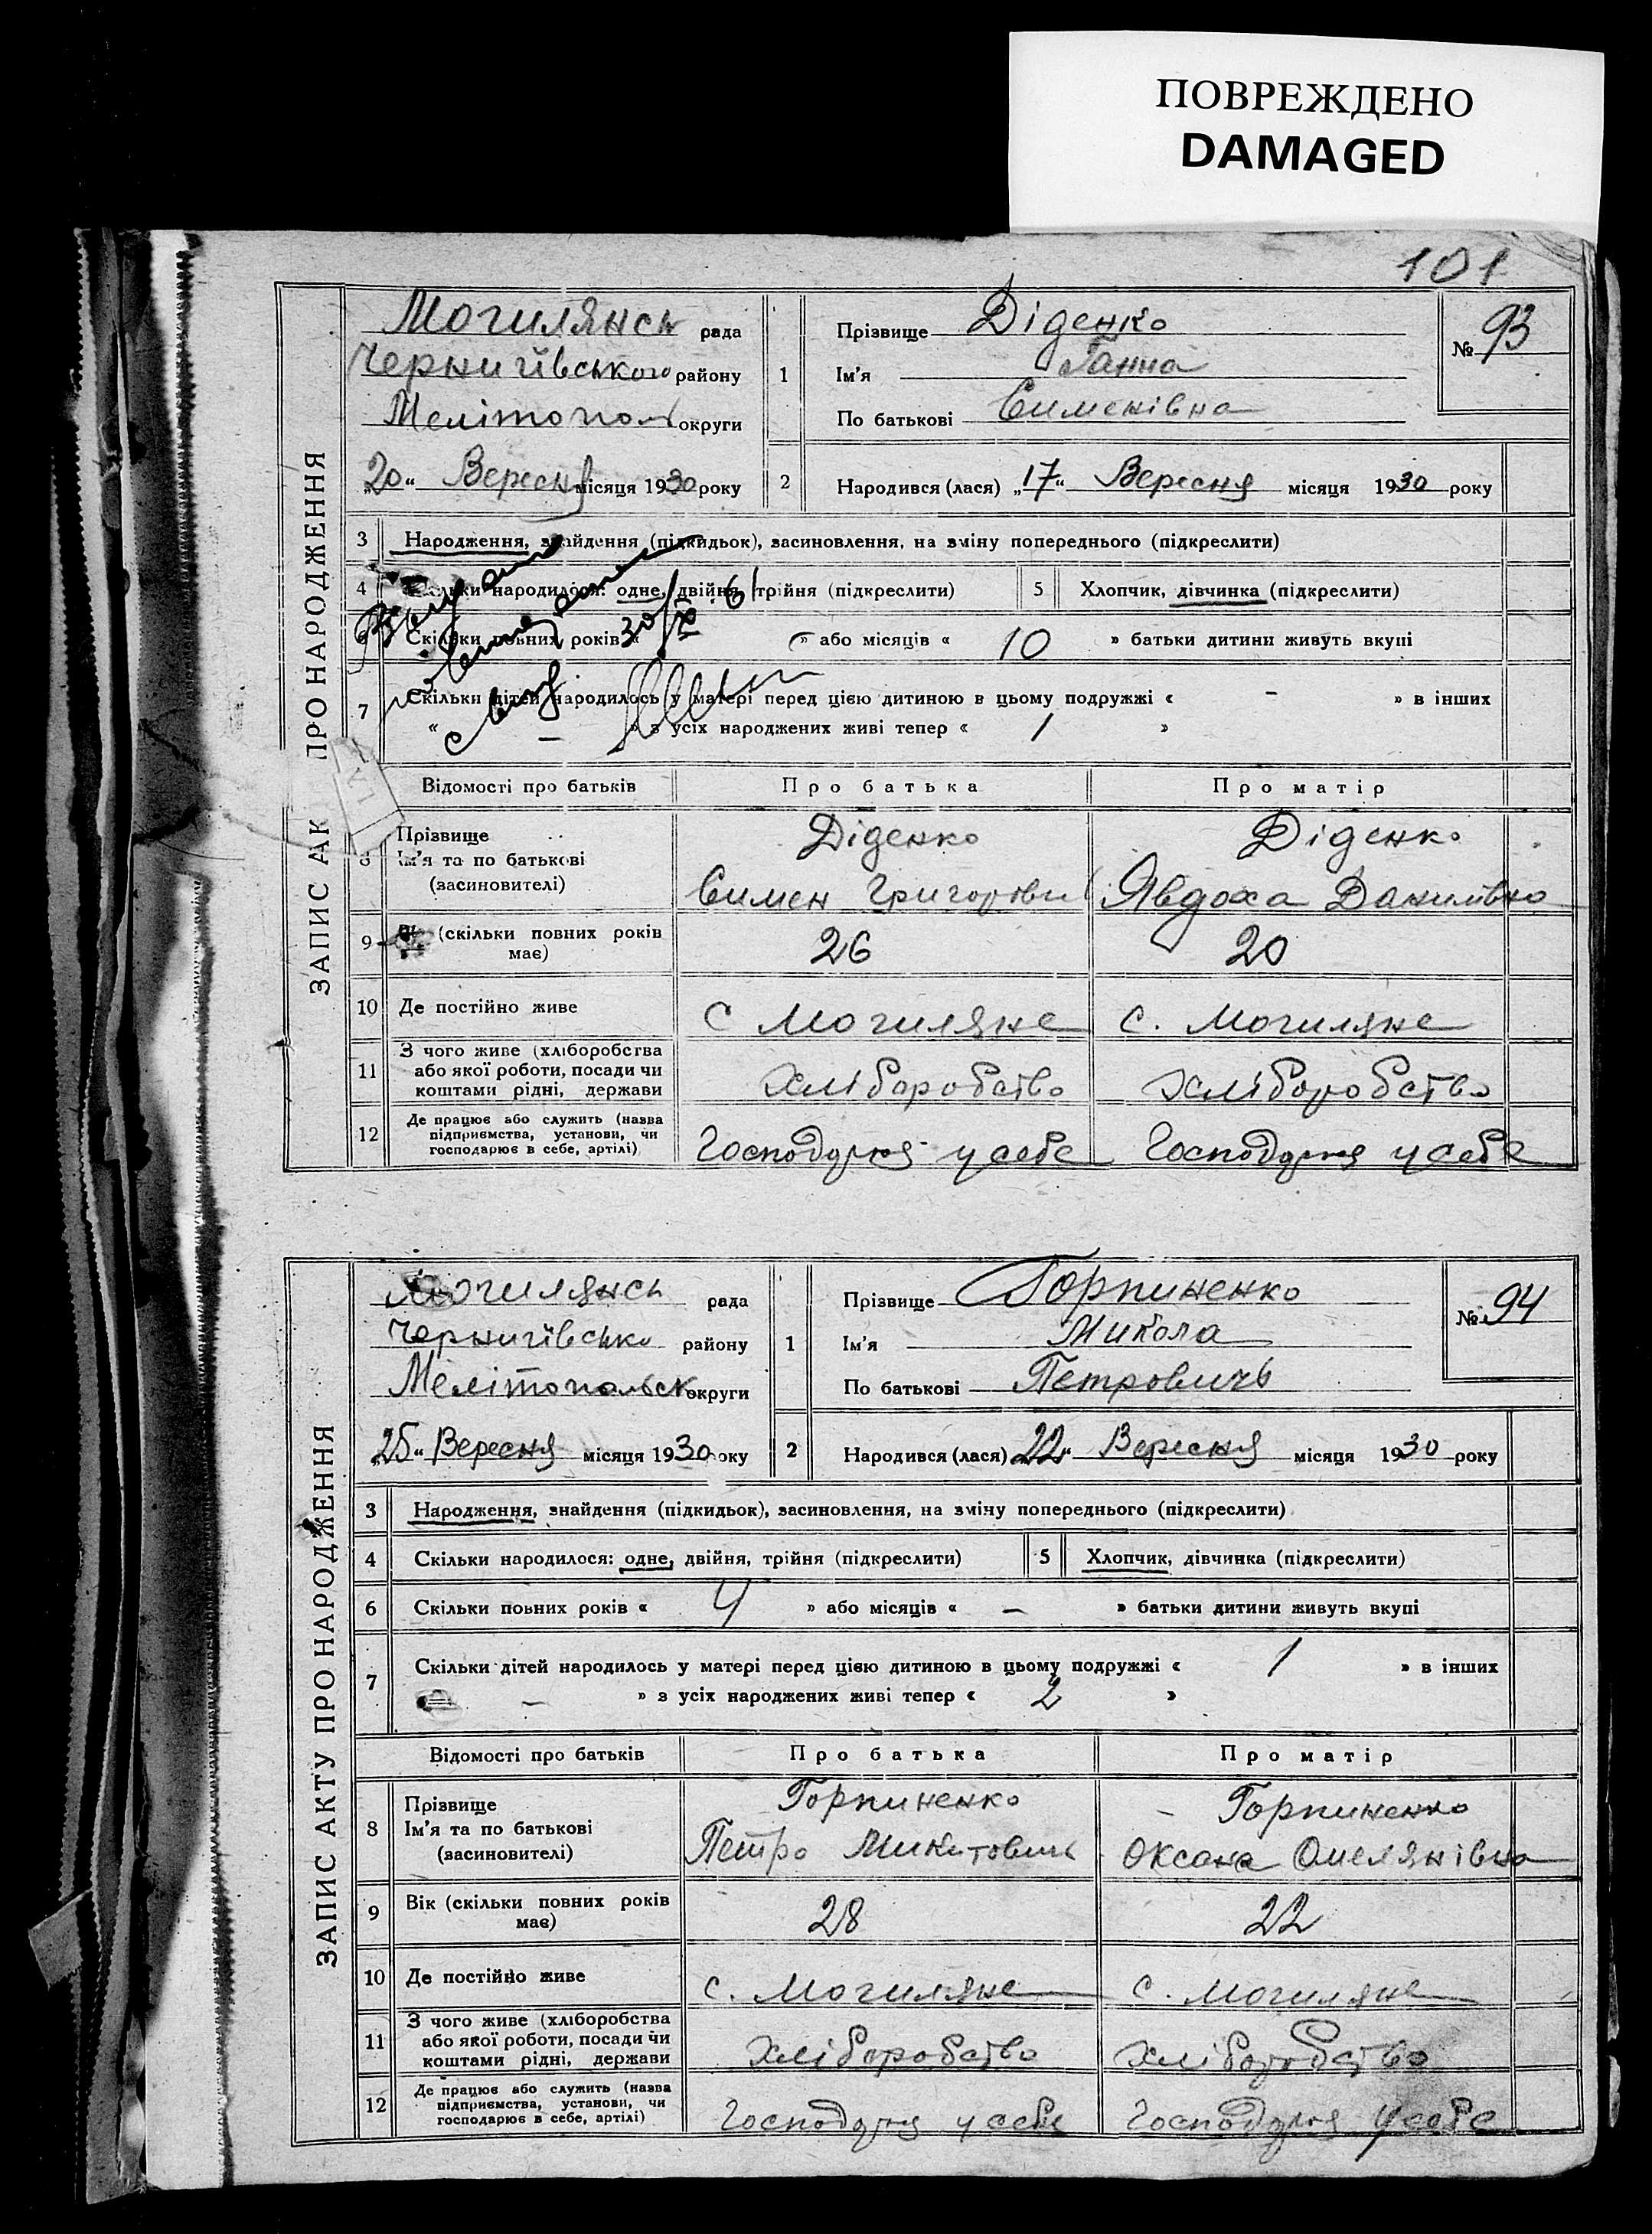 ПОВРЕЖДЕНО
DAMAGED
101
ЗАПИС АК ПРО НАРОДЖЕННЯ
Могилянськ рада
Чернигівського району
Мелітопол округи
„20“ Вересня місяця 1930 року
1
Прізвище Діденко
Ім'я Ганна
По батькові Сименівна
№ 93
2
Народився (лася) „17“ Вересня місяця 1930 року
3 Народження, знайдення (підкидьок), засиновлення, на зміну попереднього (підкреслити)
4 Скільки народилося: одне, двійня, трійня (підкреслити) 5 Хлопчик, дівчинка (підкреслити)
6 Скільки повних років « » або місяців « 10 » батьки дитини живуть вкупі
30/IX 61
7 Скільки дітей народилось у матері перед цією дитиною в цьому подружжі « – » в інших
« – » з усіх народжених живі тепер « 1 »
Відомості про батьків Про батька Про матір
8 Прізвище Діденко Діденко
Ім'я та по батькові
(засиновителі) Симен Григорович Явдоха Данилівна
9 Вік (скільки повних років має) 26 20
10 Де постійно живе С Могиляне С. Могиляне
11 З чого живе (хліборобства
або якої роботи, посади чи
коштами рідні, держави Хліборобство Хліборобство
12 Де працює або служить (назва
підприємства, установи, чи
господарює в себе, артілі) Господурює у себе Господурює у себе
ЗАПИС АКТУ ПРО НАРОДЖЕННЯ
Могилянськ рада
Чернигівсько району
Мелітопольськ округи
„25“ Вересня місяця 1930 року
1
Прізвище Горпиненко
Ім'я Микола
По батькові Петровичь
№ 94
2
Народився (лася) „22“ Вересня місяця 1930 року
3 Народження, знайдення (підкидьок), засиновлення, на зміну попереднього (підкреслити)
4 Скільки народилося: одне, двійня, трійня (підкреслити) 5 Хлопчик, дівчинка (підкреслити)
6 Скільки повних років « 4 » або місяців « – » батьки дитини живуть вкупі
7 Скільки дітей народилось у матері перед цією дитиною в цьому подружжі « 1 » в інших
– » з усіх народжених живі тепер « 2 »
Відомості про батьків Про батька Про матір
8 Прізвище Горпиненко Горпиненко
Ім'я та по батькові
(засиновителі) Петро Микитович Оксана Омелянівна
9 Вік (скільки повних років має) 28 22
10 Де постійно живе с. Могиляне с. Могиляне
11 З чого живе (хліборобства
або якої роботи, посади чи
коштами рідні, держави Хліборобство Хліборобство
12 Де працює або служить (назва
підприємства, установи, чи
господарює в себе, артілі) Господурює у себе Господурює у себе